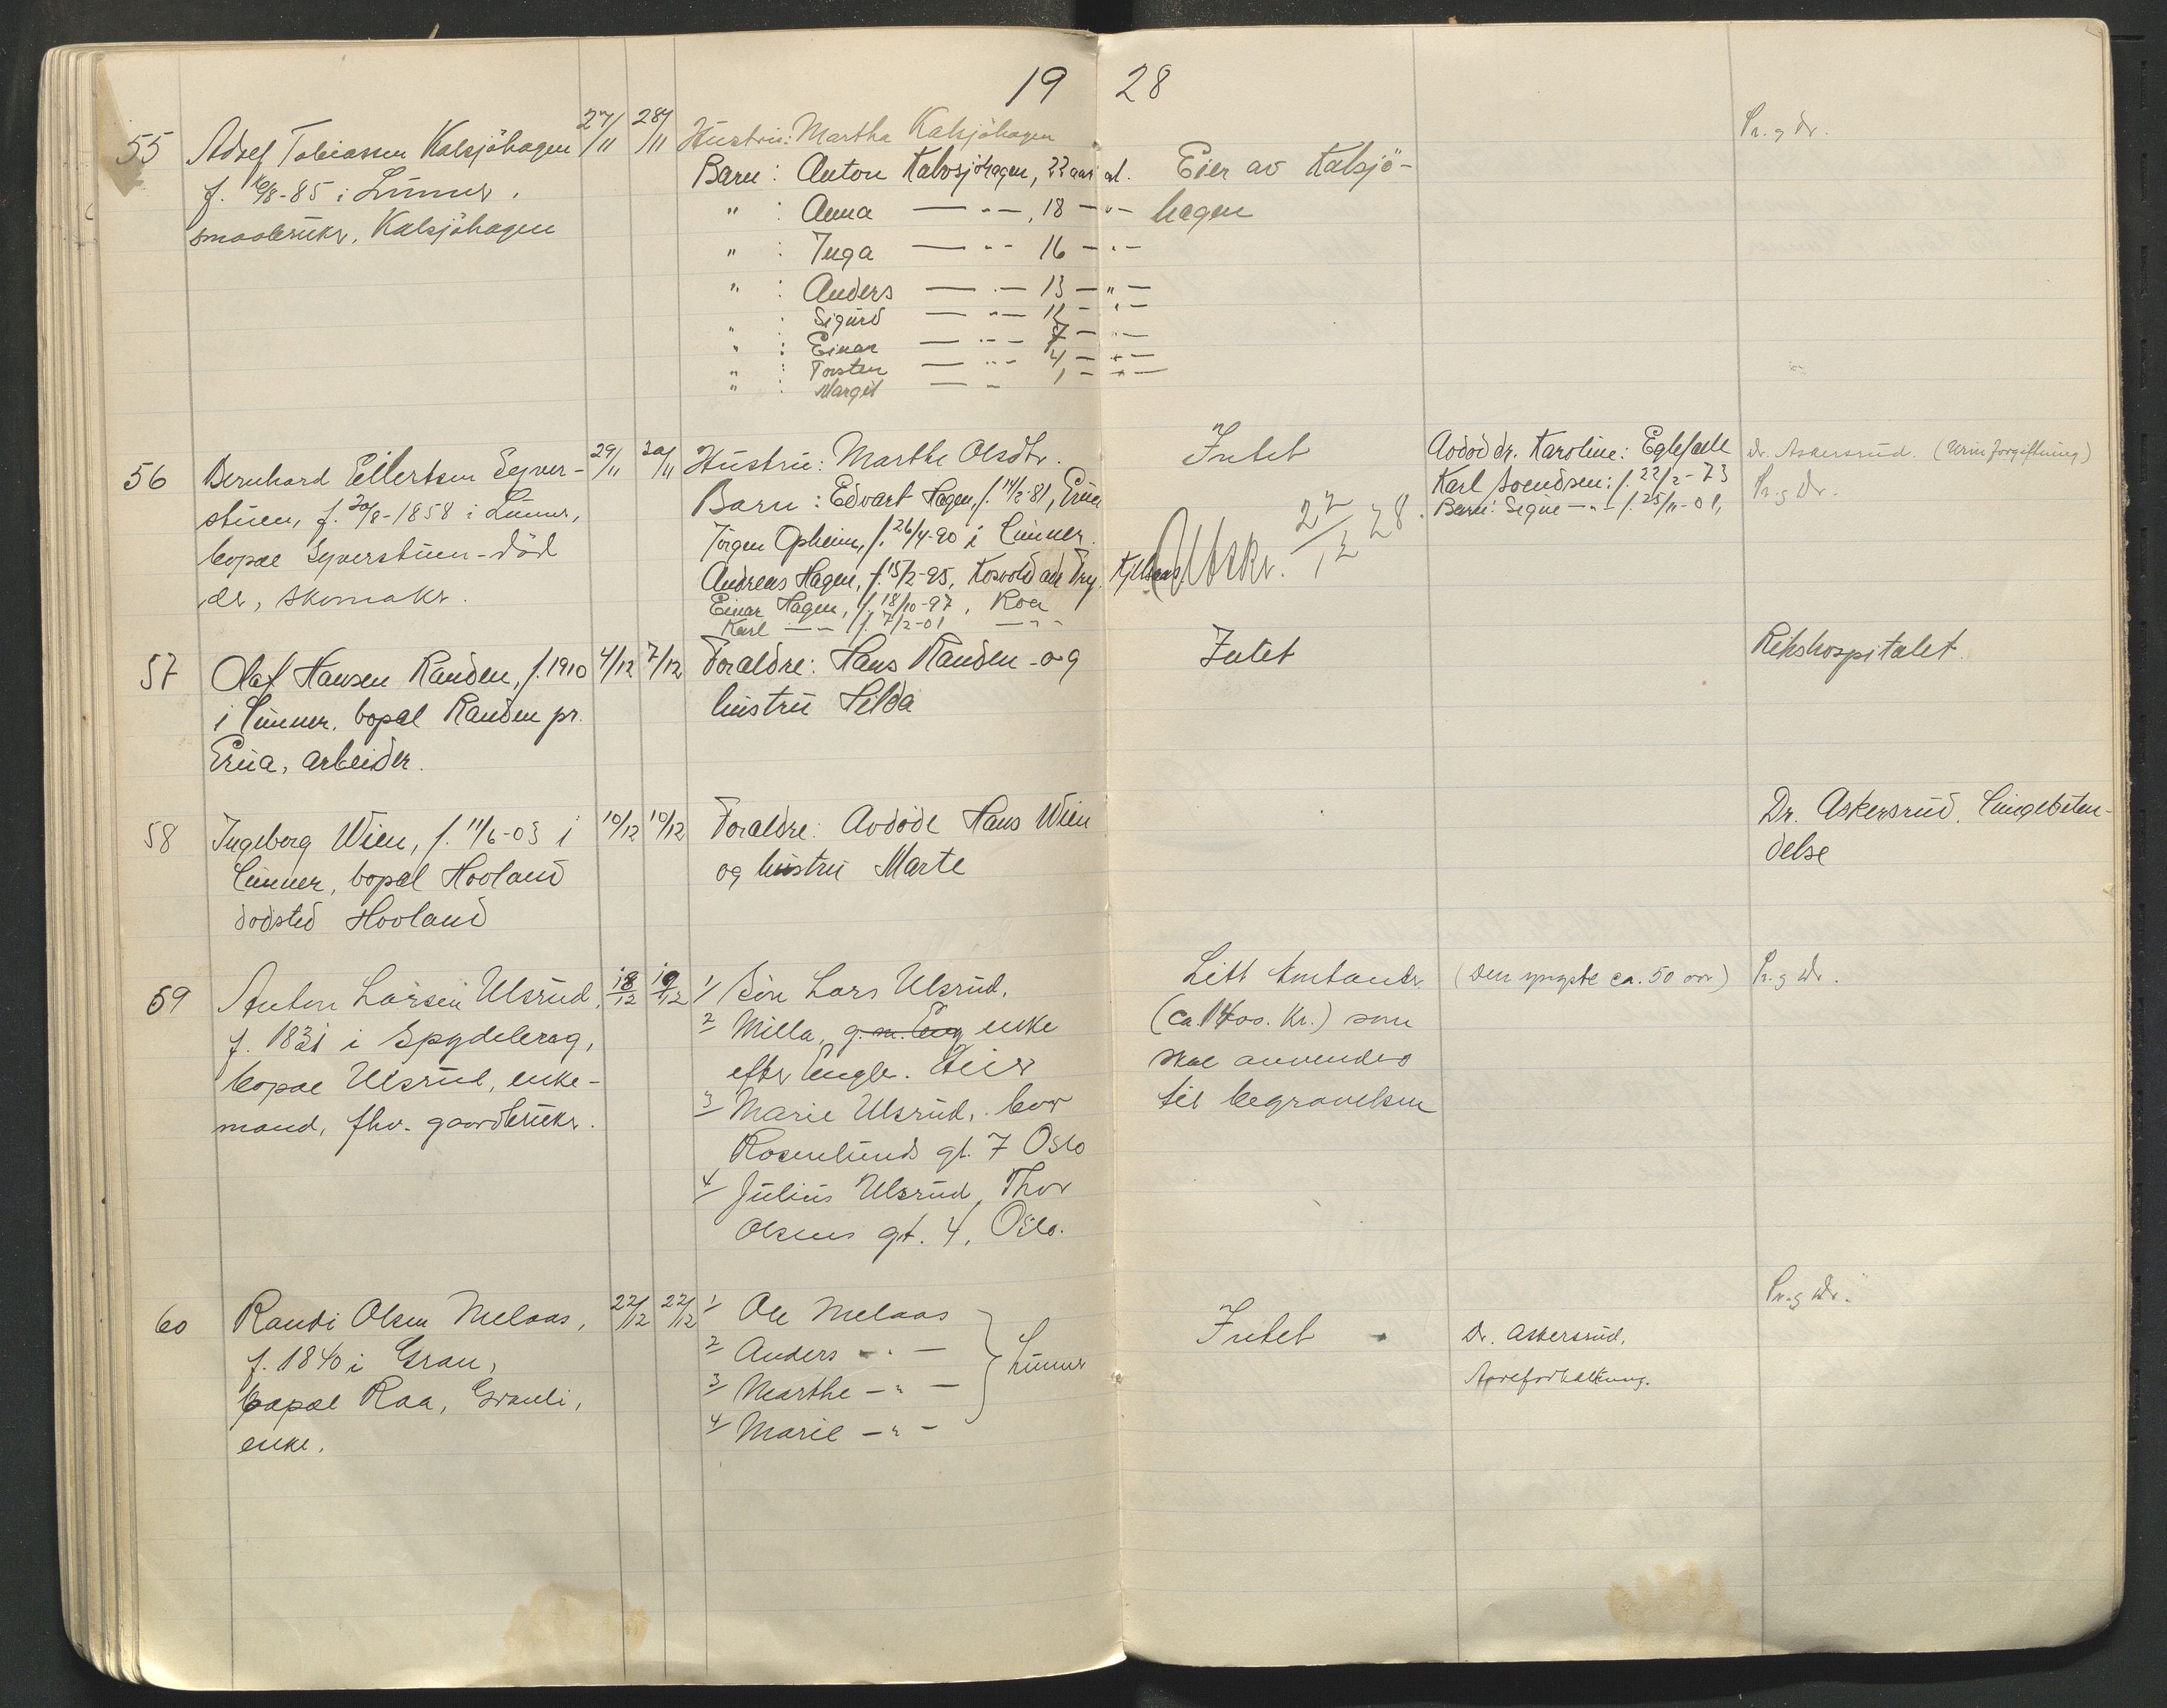 19 28
55 Adolf Tobiassen Kalsjöhagen 27/11 28/11 Hustru: Martha Kalsjöhagen Pr. g dr.
f. 16/8-85 i Lunner, Barn: Anton Kalvsjöhagen, 22 aar al. Eier av Kalsjö-
smaabruker, Kalsjöhagen " : Anna — " —, 18 — " — hagen
" : Inga — " — 16 — " —
" : Anders — " — 13 — " —
" : Sigurd — " — 12 — " —
" : Einar — " — 7 — " —
" : Torsten — " — 4 — " —
" : Margit — " 1 — " —
56 Bernhard Ellertsen Syver- 29/11 30/11 Hustru: Marthe Olsdtr. Intet Avdød dr. Karoline: Eglefall Dr. Askersrud. (Urinforgiftning)
stuen, f. 20/8-1858 i Lunner, Barn: Edvart Hagen, f. 14/2-81, Grua Karl Svendsen: f. 22/2-73 Pr. g Dr.
bopæl Syverstuen - död Jörgen Opheim, f. 26/4-90 i Lunner. Utskr. 22/12 28. Barn: Signe — " — f. 25/11-01,
do, skomaker. Andreas Hagen, f. 15/2-95,
Einar Hagen, f. 18/10-97, Roa
Karl — " — f. 7/2-01 — " —
57 Olaf Hansen Randen, f. 1910 4/12 7/12 Foraldre: Hans Randen og Intet Rikshospitalet.
i Lunner, bopæl Randen pr. hustru Hilda
Grua, arbeider.
58 Ingeborg Wien, f. 11/6-03 i 10/12 10/12 Foraldre: Avdöde Hans Wien Dr. Askersrud. Lungebeten-
Lunner, bopæl Hovland og hustru Marte delse
dödsted Hovland
59 Anton Larsen Ulsrud, 18/12 19/12 1/ Sön Lars Ulsrud, Litt kontanter (den yngste ca. 50 aar) Pr. g Dr.
f. 1831 i Spydeberg, 2/ Milla, g. m. Eng enke (ca 1400. Kr.) som
bopæl Ulsrud, enke- efter Engb. Heier skal anvendes
mand, fhv. gaardbruker. 3/ Marie Ulsrud, bor til begravelsen
Rosenlunds gt. 7 Oslo
4/ Julius Ulsrud, Thor
Olsens gt. 4, Oslo.
60 Randi Olsen Melaas, 22/12 22/12 1/ Ole Melaas Intet Dr. Askersrud, Pr. g Dr.
f. 1840 i Gran, 2/ Anders — " — Lunner Aareforkalkning.
bopæl Roa, Granli, 3/ Marthe — " —
enke. 4/ Marie — " —